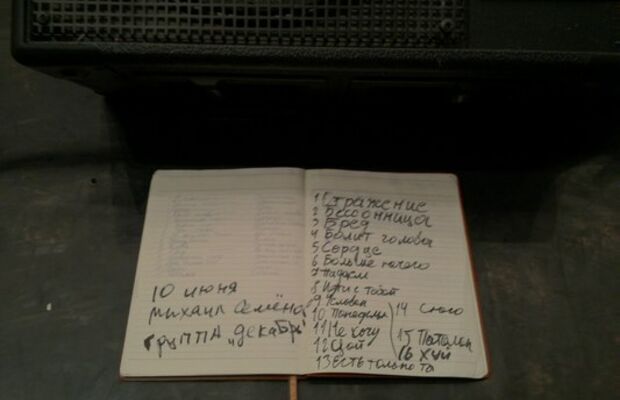 10 июня
Михаил Семёнов
группа „декабрь"
1 Отражение
2 Бессонница
3 Бред
4 Болит голова
5 Сердце
6 Больше ничего
7 Падаем
8 Идти с тобой
9
10
11 Не хочу
12 Цой
13 Есть только ты
14
15 Потолок
16 Хуй